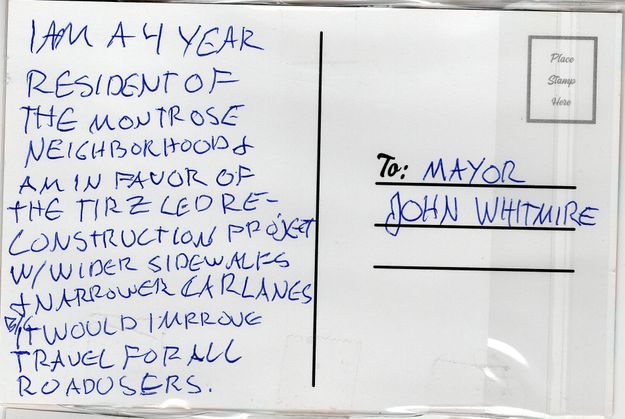 I AM A 4 YEAR
RESIDENT OF
THE MONTROSE
NEIGHBORHOOD &
AM IN FAVOR OF
THE TIRZ LED RE-
CONSTRUCTION PROJECT
W/ WIDER SIDEWALKS
& NARROWER CAR LANES
B/C IT WOULD IMPROVE
TRAVEL FOR ALL
ROAD USERS.
Place
Stamp
Here
To: MAYOR
JOHN WHITMIRE